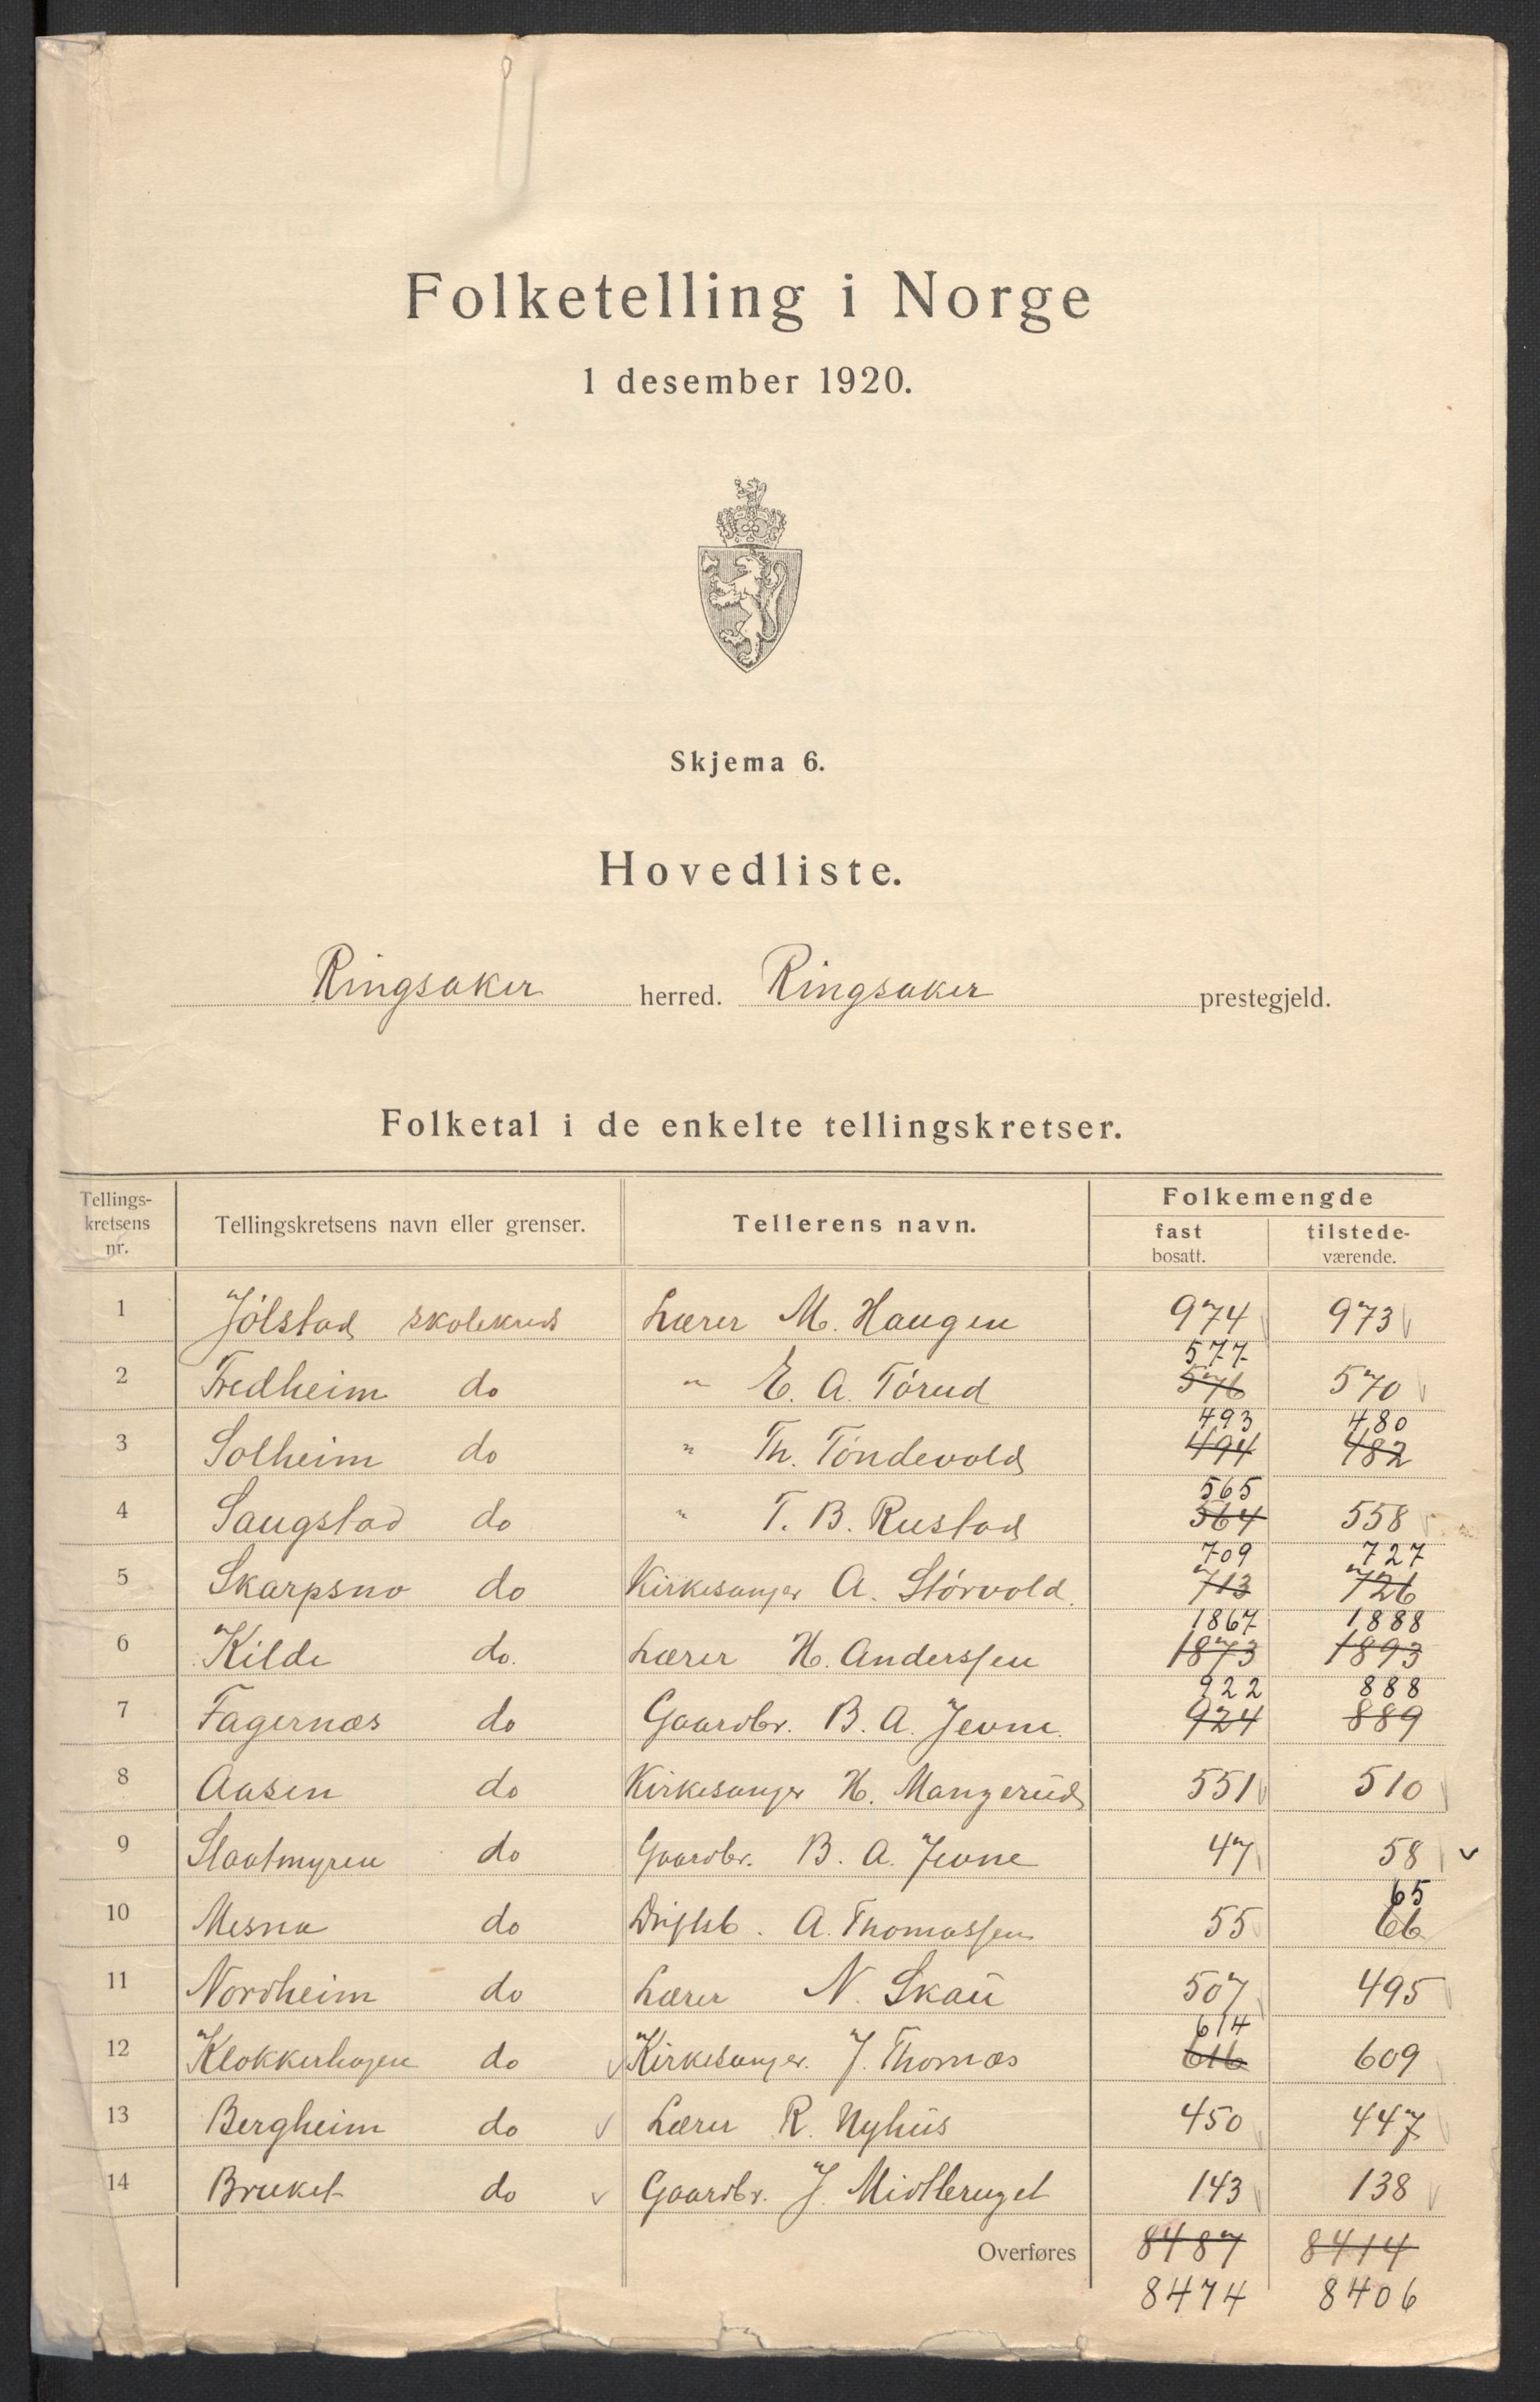 Folketelling i Norge
1 desember 1920.
Skjema 6.
Hovedliste.
Ringsaker herred. Ringsaker prestegjeld.
Folketal i de enkelte tellingskretser.
Tellings-kretsens nr. Tellingskretsens navn eller grenser. Tellerens navn. Folkemengde fast bosatt. tilstede-værende.
1 Jølstad skolekreds Lærer M. Haugen 974 973
577
2 Fredheim do " E. A. Tørud 576 570
493 480
3 Solheim do " Th. Tøndevold 494 482
565
4 Saugstad do " T. B. Rustad 564 558
709 727
5 Skarpsno do Kirkesanger A. Størvold. 713 726
1867 1888
6 Kilde do. Lærer H. Anderssen 1873 1893
922 888
7 Fagernæs do Gaardbr. B. A. Jevne. 924 889
8 Aasen do Kirkesanger H. Mangerud 551 510
9 Slaatmyren do Gaardbr. B. A. Jevne 47 58
65
10 Mesna do A. Thomassen 55 66
11 Nordheim do Lærer N. Skau 507 495
614
12 Klokkerhagen do Kirkesanger. J. Thomas 616 609
13 Bergheim do Lærer R. Nyhus 450 447
14 do Gaardbr. J. 143 138
Overføres 8487 8414
8474 8406